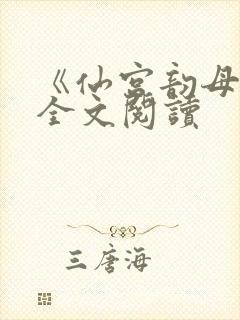 《仙宫韵母
全文閱讀
三唐海